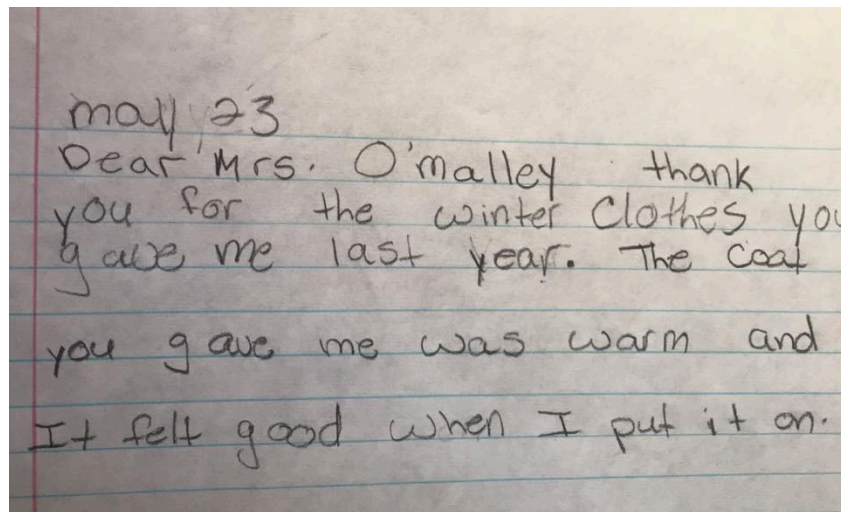 may 23
Dear Mrs. O'malley thank
you for the winter Clothes you
gave me last year. The Coat
you gave me was warm and
It felt good when I put it on.